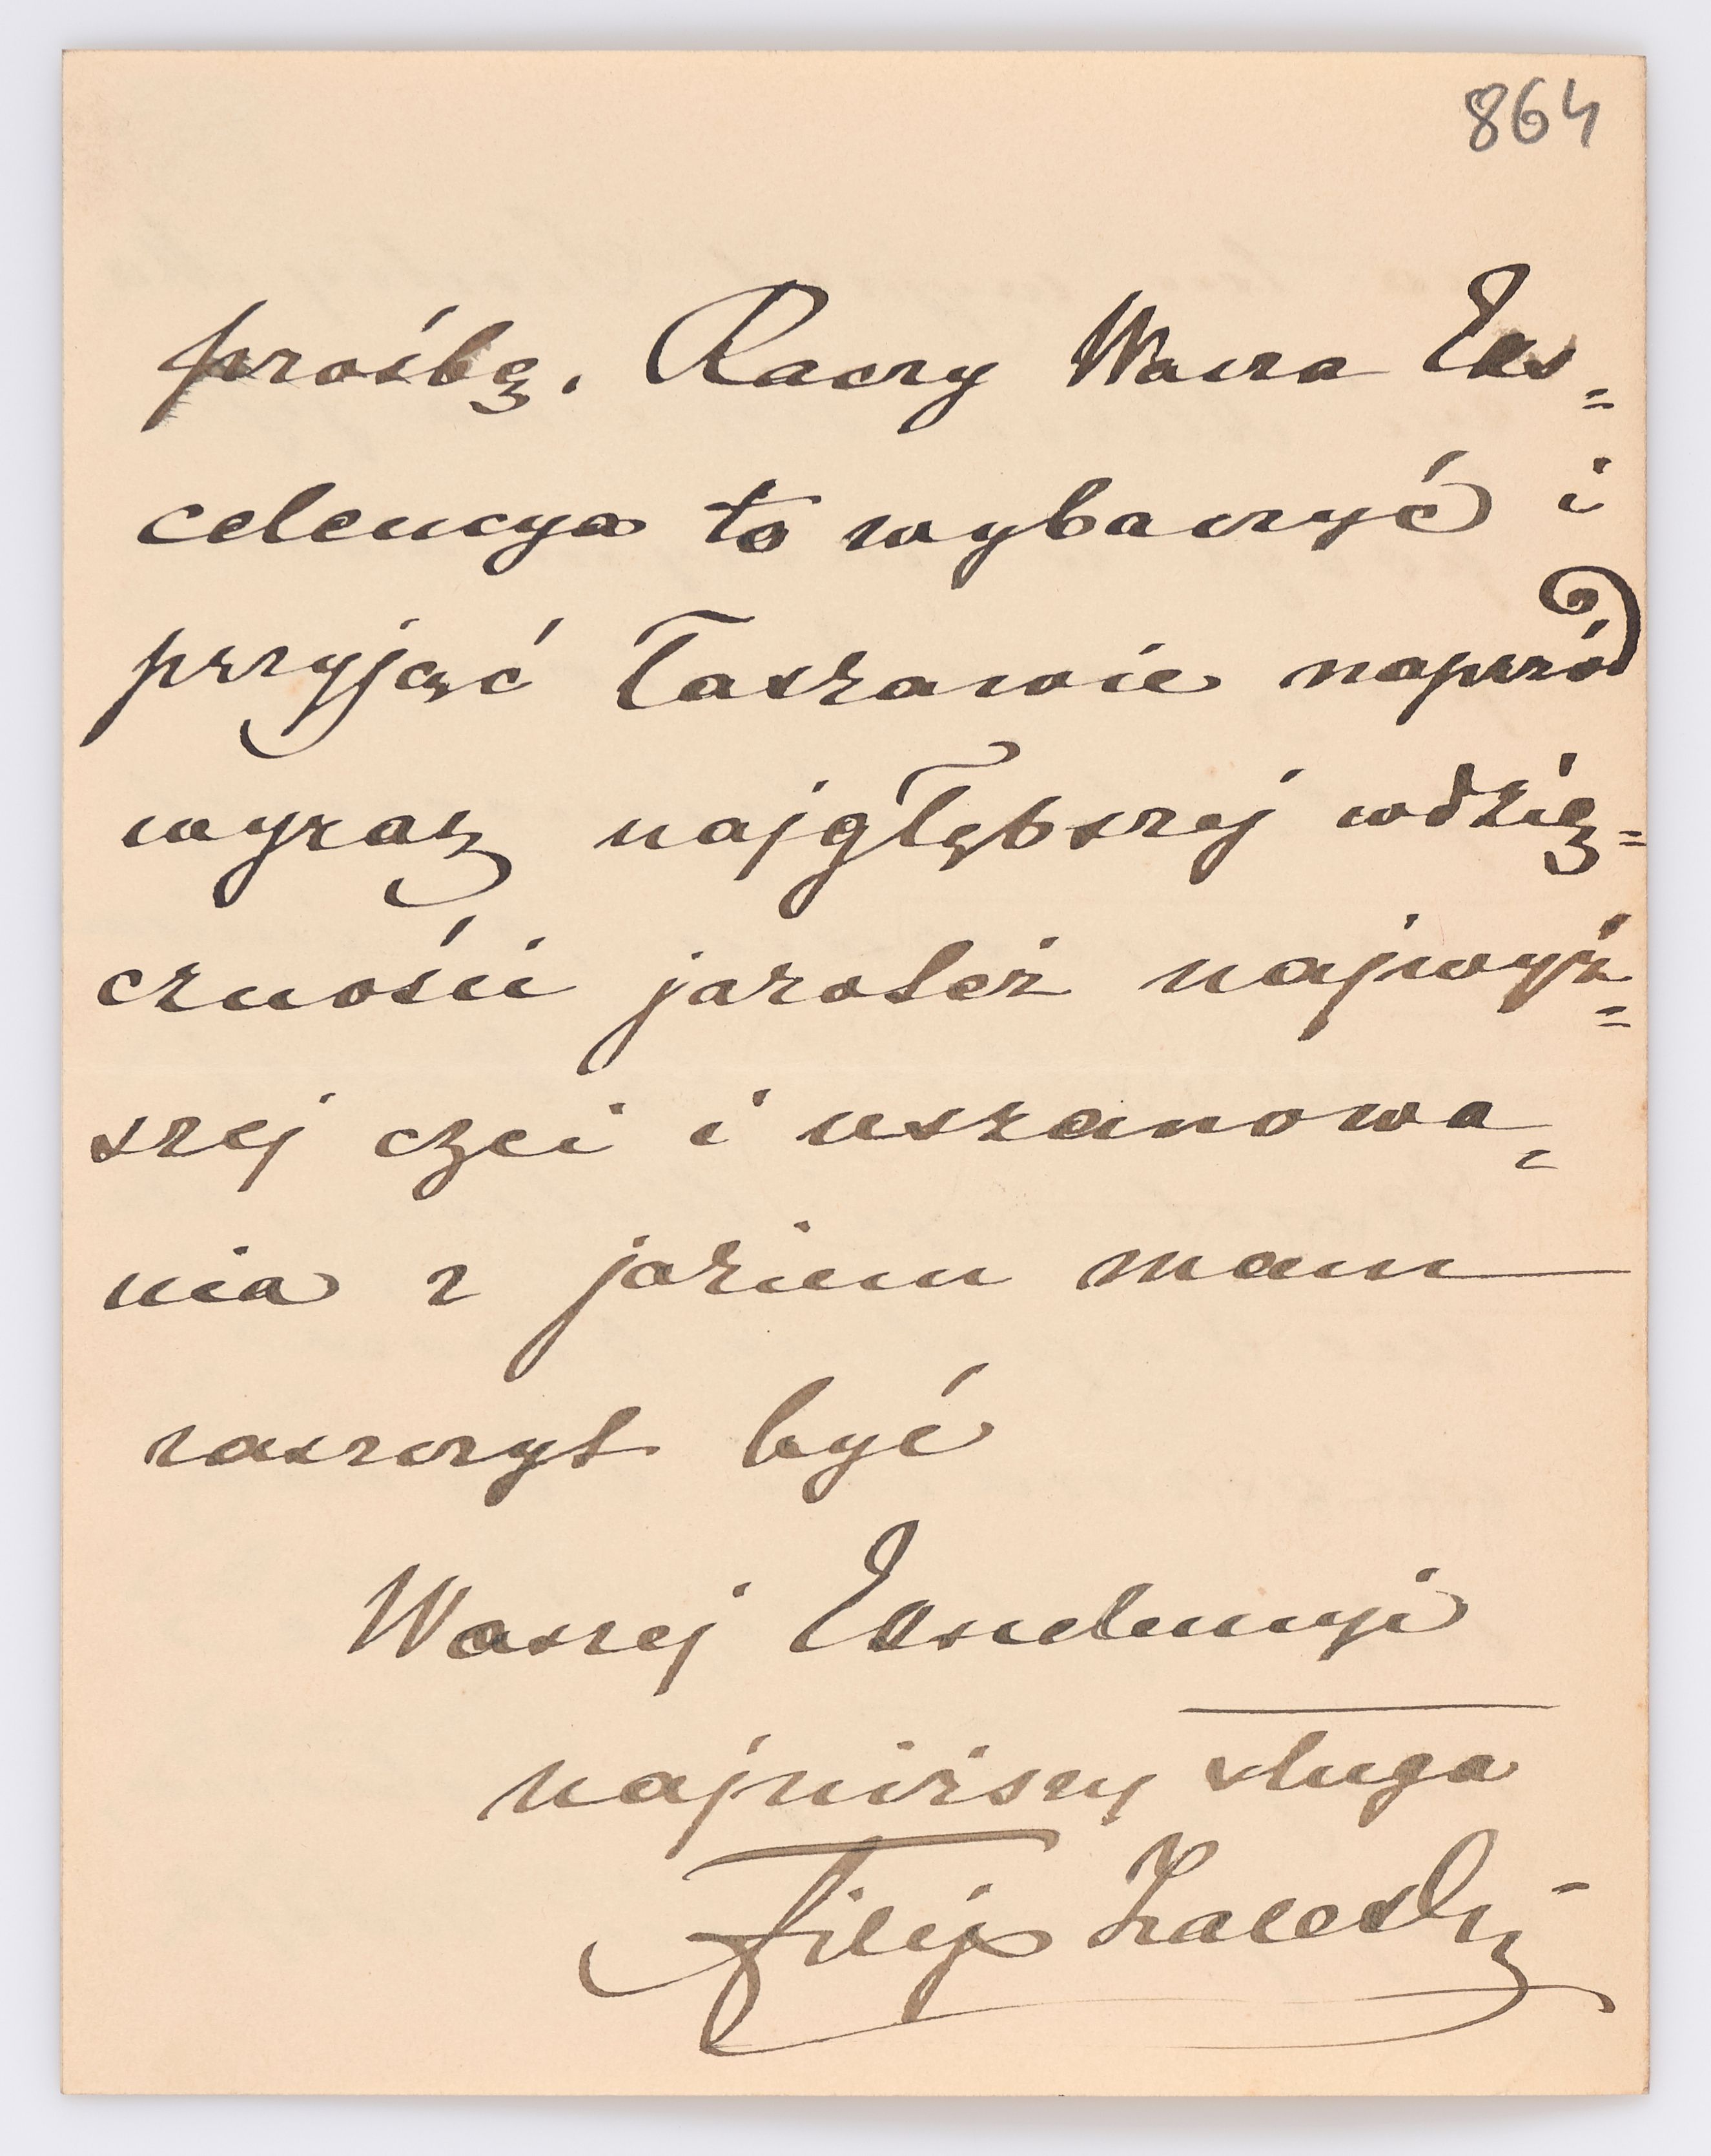 864
prośbę. Raczy Wasza Eks=
celencya to wybaczyć i
przyjąć łaskawie naprzód
wyraz najgłębszej wdzię=
czności jakoteż najwyż=
szej czci i uszanowa=
nia z jakiem mam
zaszczyt być
Waszej Ekscelencyi
najniższy sługa
Filip Zaleski